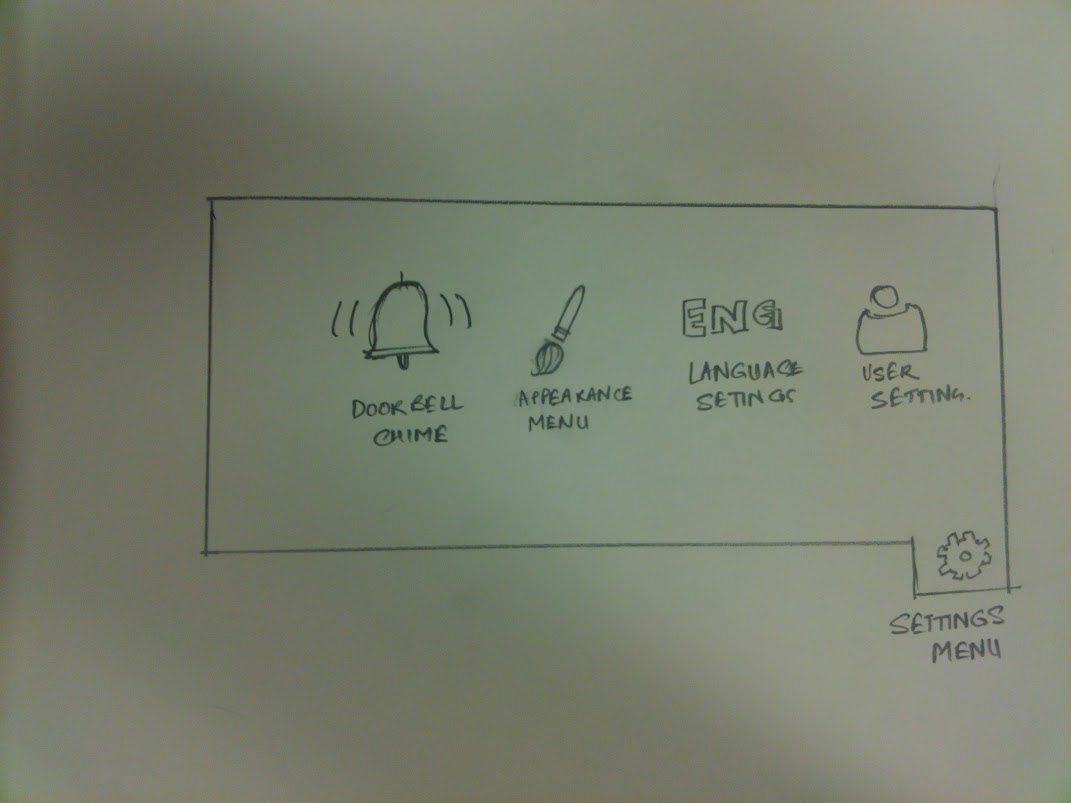 ENG
DOOR BELL
CHIME
APPEARANCE
MENU
LANGUAGE
SETINGS
USER
SETTING.
SETTINGS
MENU